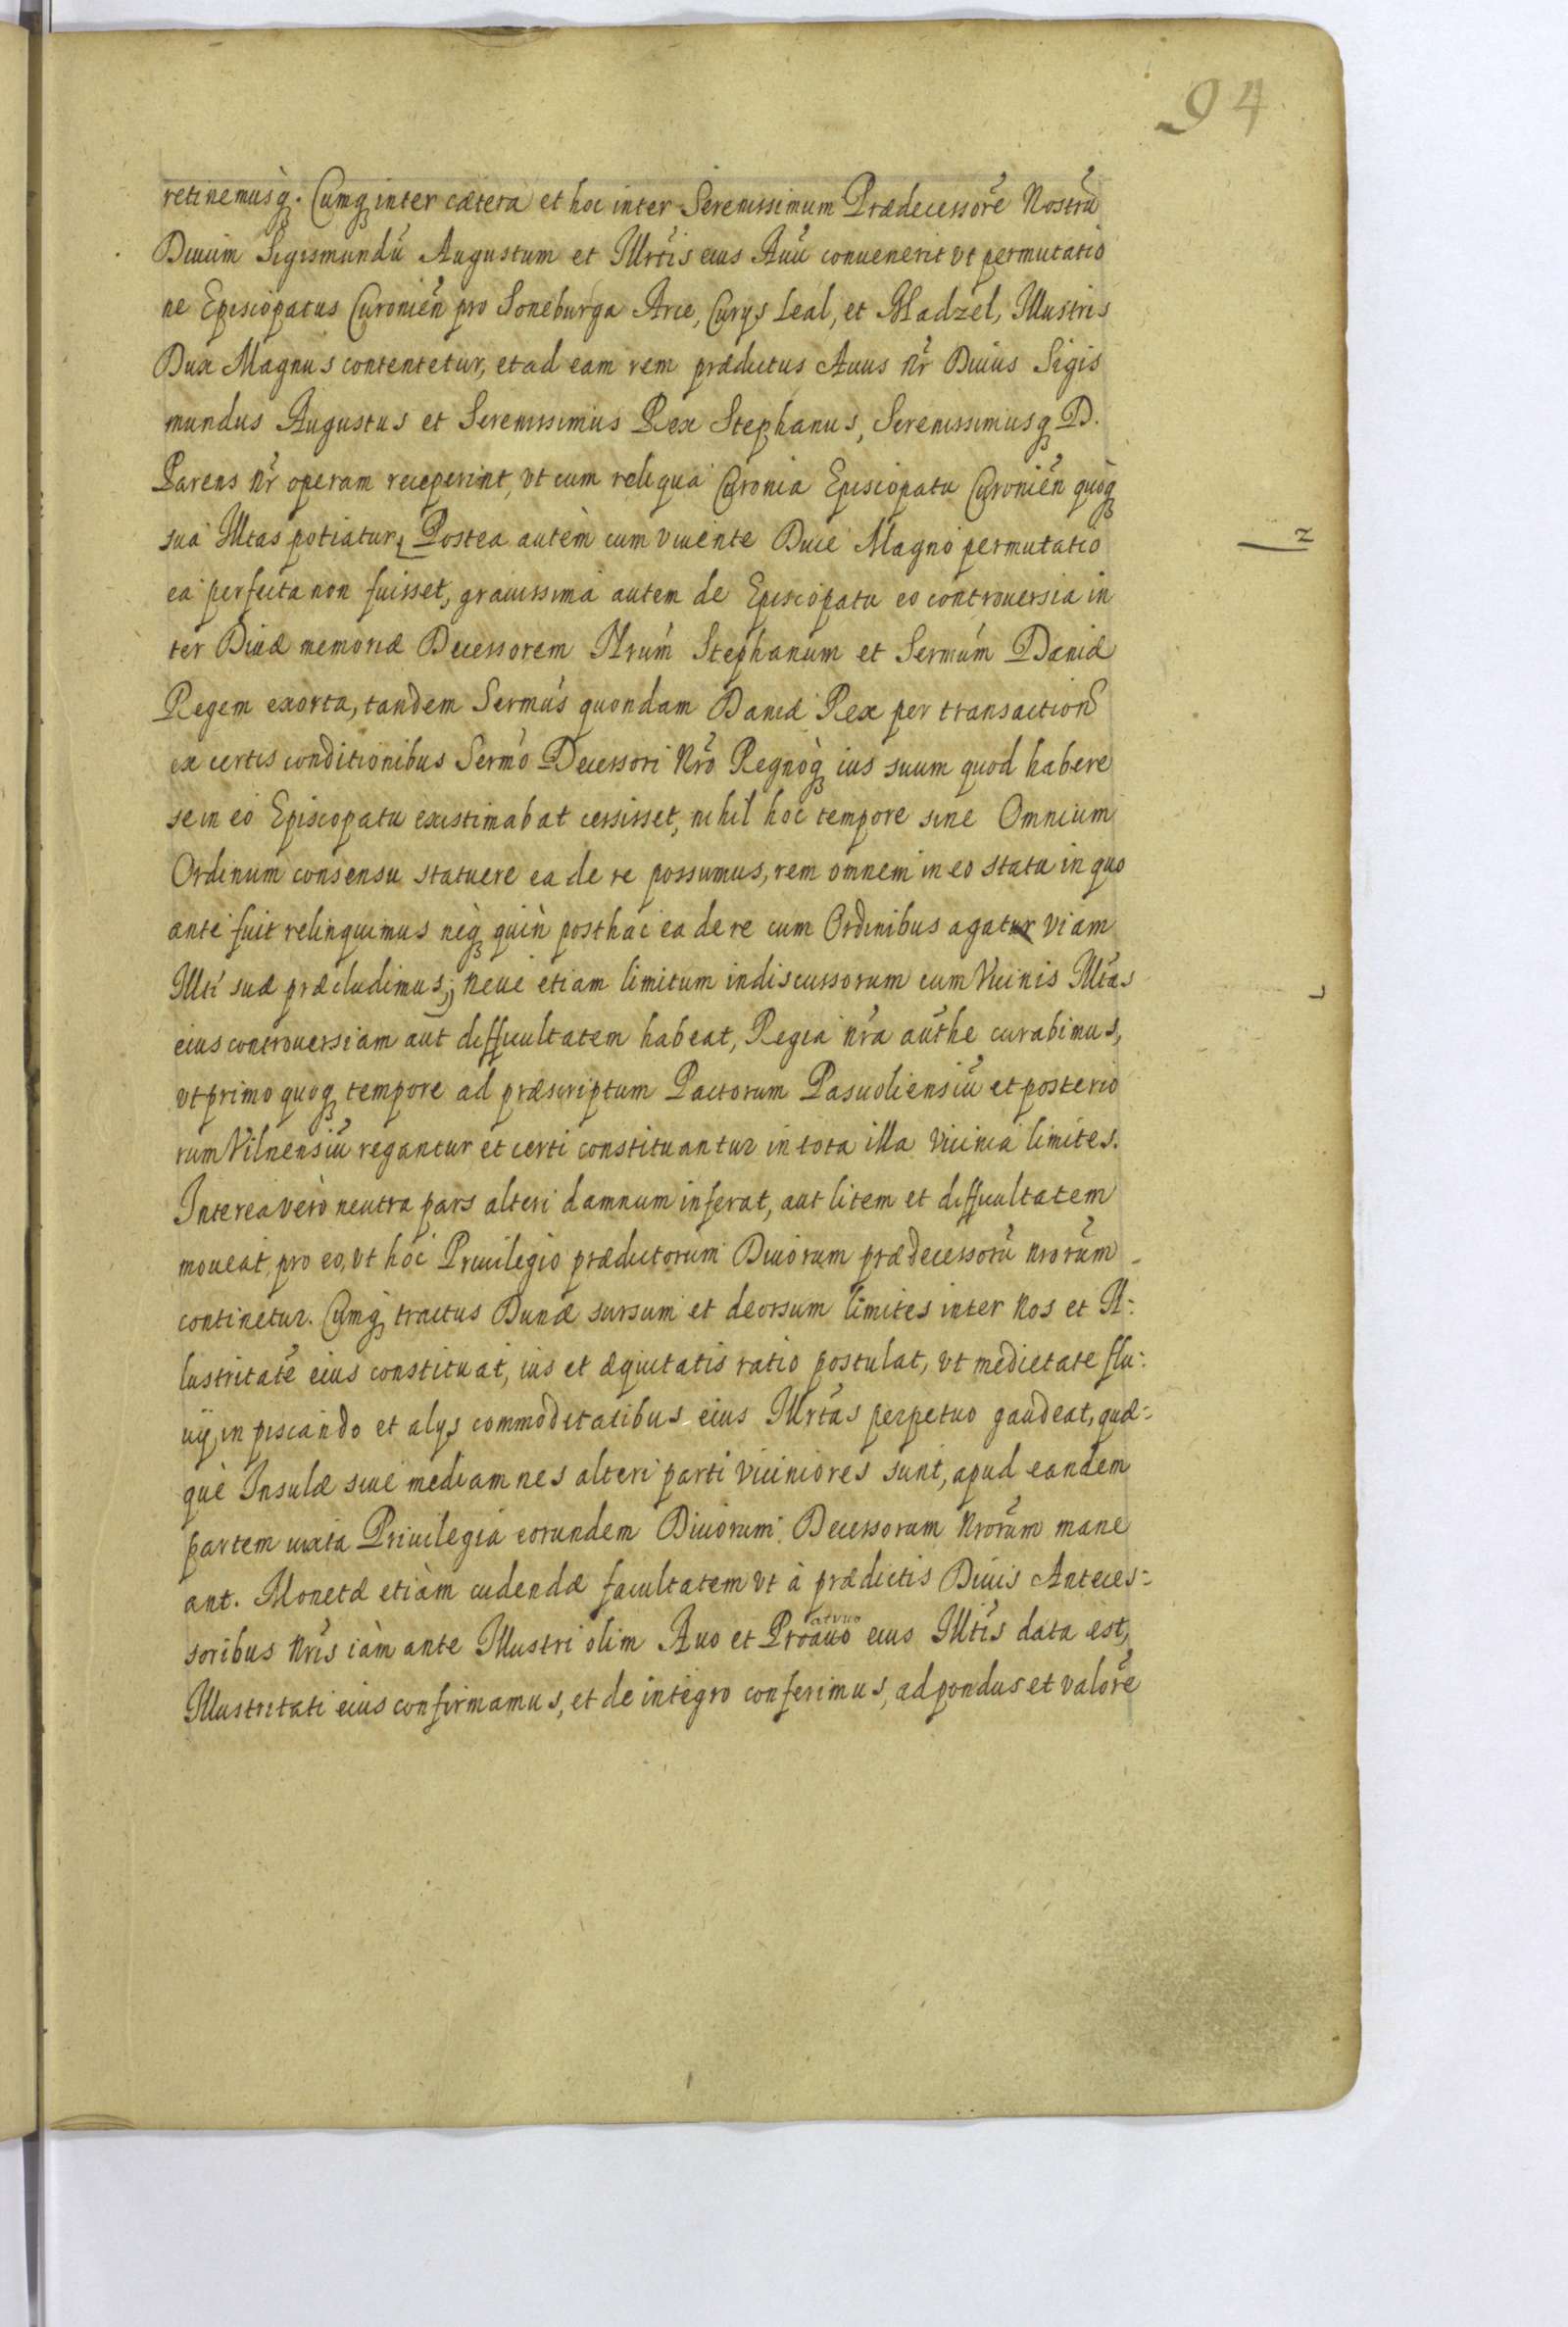 94
retinemusq́. Cumq inter cætera et hoc inter Serenissimum Prædecessorẽ Nostrũ
Diuum Sigismundũ Augustum et Illrtis eius Auũ conuenerit vt permutatio
ne Episcopatus Curonieñ pro Soneburga Arce, Curys Leal, et Hadzel, Illustris
Dux Magnus contentetur, et ad eam rem prædictus Auus Nr̃ Diuus Sigis
mundus Augustus et Serenissimus Rex Stephanus, Serenissimusq D.
Parens Nr̃ operam receperint, vt cum reliqua Curonia Episcopatu Curonieñ quoq
sua Illtas potiatur, Postea autèm cum viuente Duce Magno permutatio
ea perfecta non fuisset, grauissima autem de Episcopatu eo controuersia in
ter Diuæ memoriæ Decessorem Nrum Stephanum et Sermum Daniæ
Regem exorta, tandem Sermus quondam Daniæ Rex per transaction
ex certis conditionibus Sermo Decessori Nr̃o Regnoq̀ ius suum quod habere
se in eo Episcopatu existimabat cessisset, nihil hoc tempore sine Omnium
Ordinum consensu statuere ea de re possumus, rem omnem in eo statu in quo
ante fuit relinquimus neq̀ quìn posthac ea de re cum Ordinibus agatur viam
Illti suæ præcludimus; Neue etiam limitum indiscussorum cum Vicinis Illtas
eius controuersiam aut difficultatem habeat, Regia nr̃a authe curabimus,
vt primo quoq tempore ad præscriptum Pactorum Pasuoliensiũ et posterio
rum Vilnensiũ regantur et certi constituantur in tota illa vicinia limites.
Interea verò neutra pars alteri damnum inferat, aut litem et difficultatem
moueat, pro eo, vt hoc Priuilegio prædictorum Diuorum prædecessorũ nrorũm
continetur. Cumq̀ tractus Dunæ sursum et deorsum limites inter Nos et Il:
lustritatẽ eius constituat, ius et æquitatis ratio postulat, vt medietate flu:
uij in piscando et alys commoditatibus eius Illrtas perpetuo gaudeat, quæ:
què Insulæ siue mediamnes alteri parti viciniores sunt, apud eandem
partem iuxta Priuilegia eorundem Diuorum Decessorum Nrorũm mane
ant. Monetæ etiàm cudendæ facultatem vt à prædictis Diuis Anteces:
soribus Nr̃is iàm ante Illustri olim Auo et Proauo atruo eius Illtis data est,
Illustritati eius confirmamus, et de integro conferimus, ad pondus et valorẽ